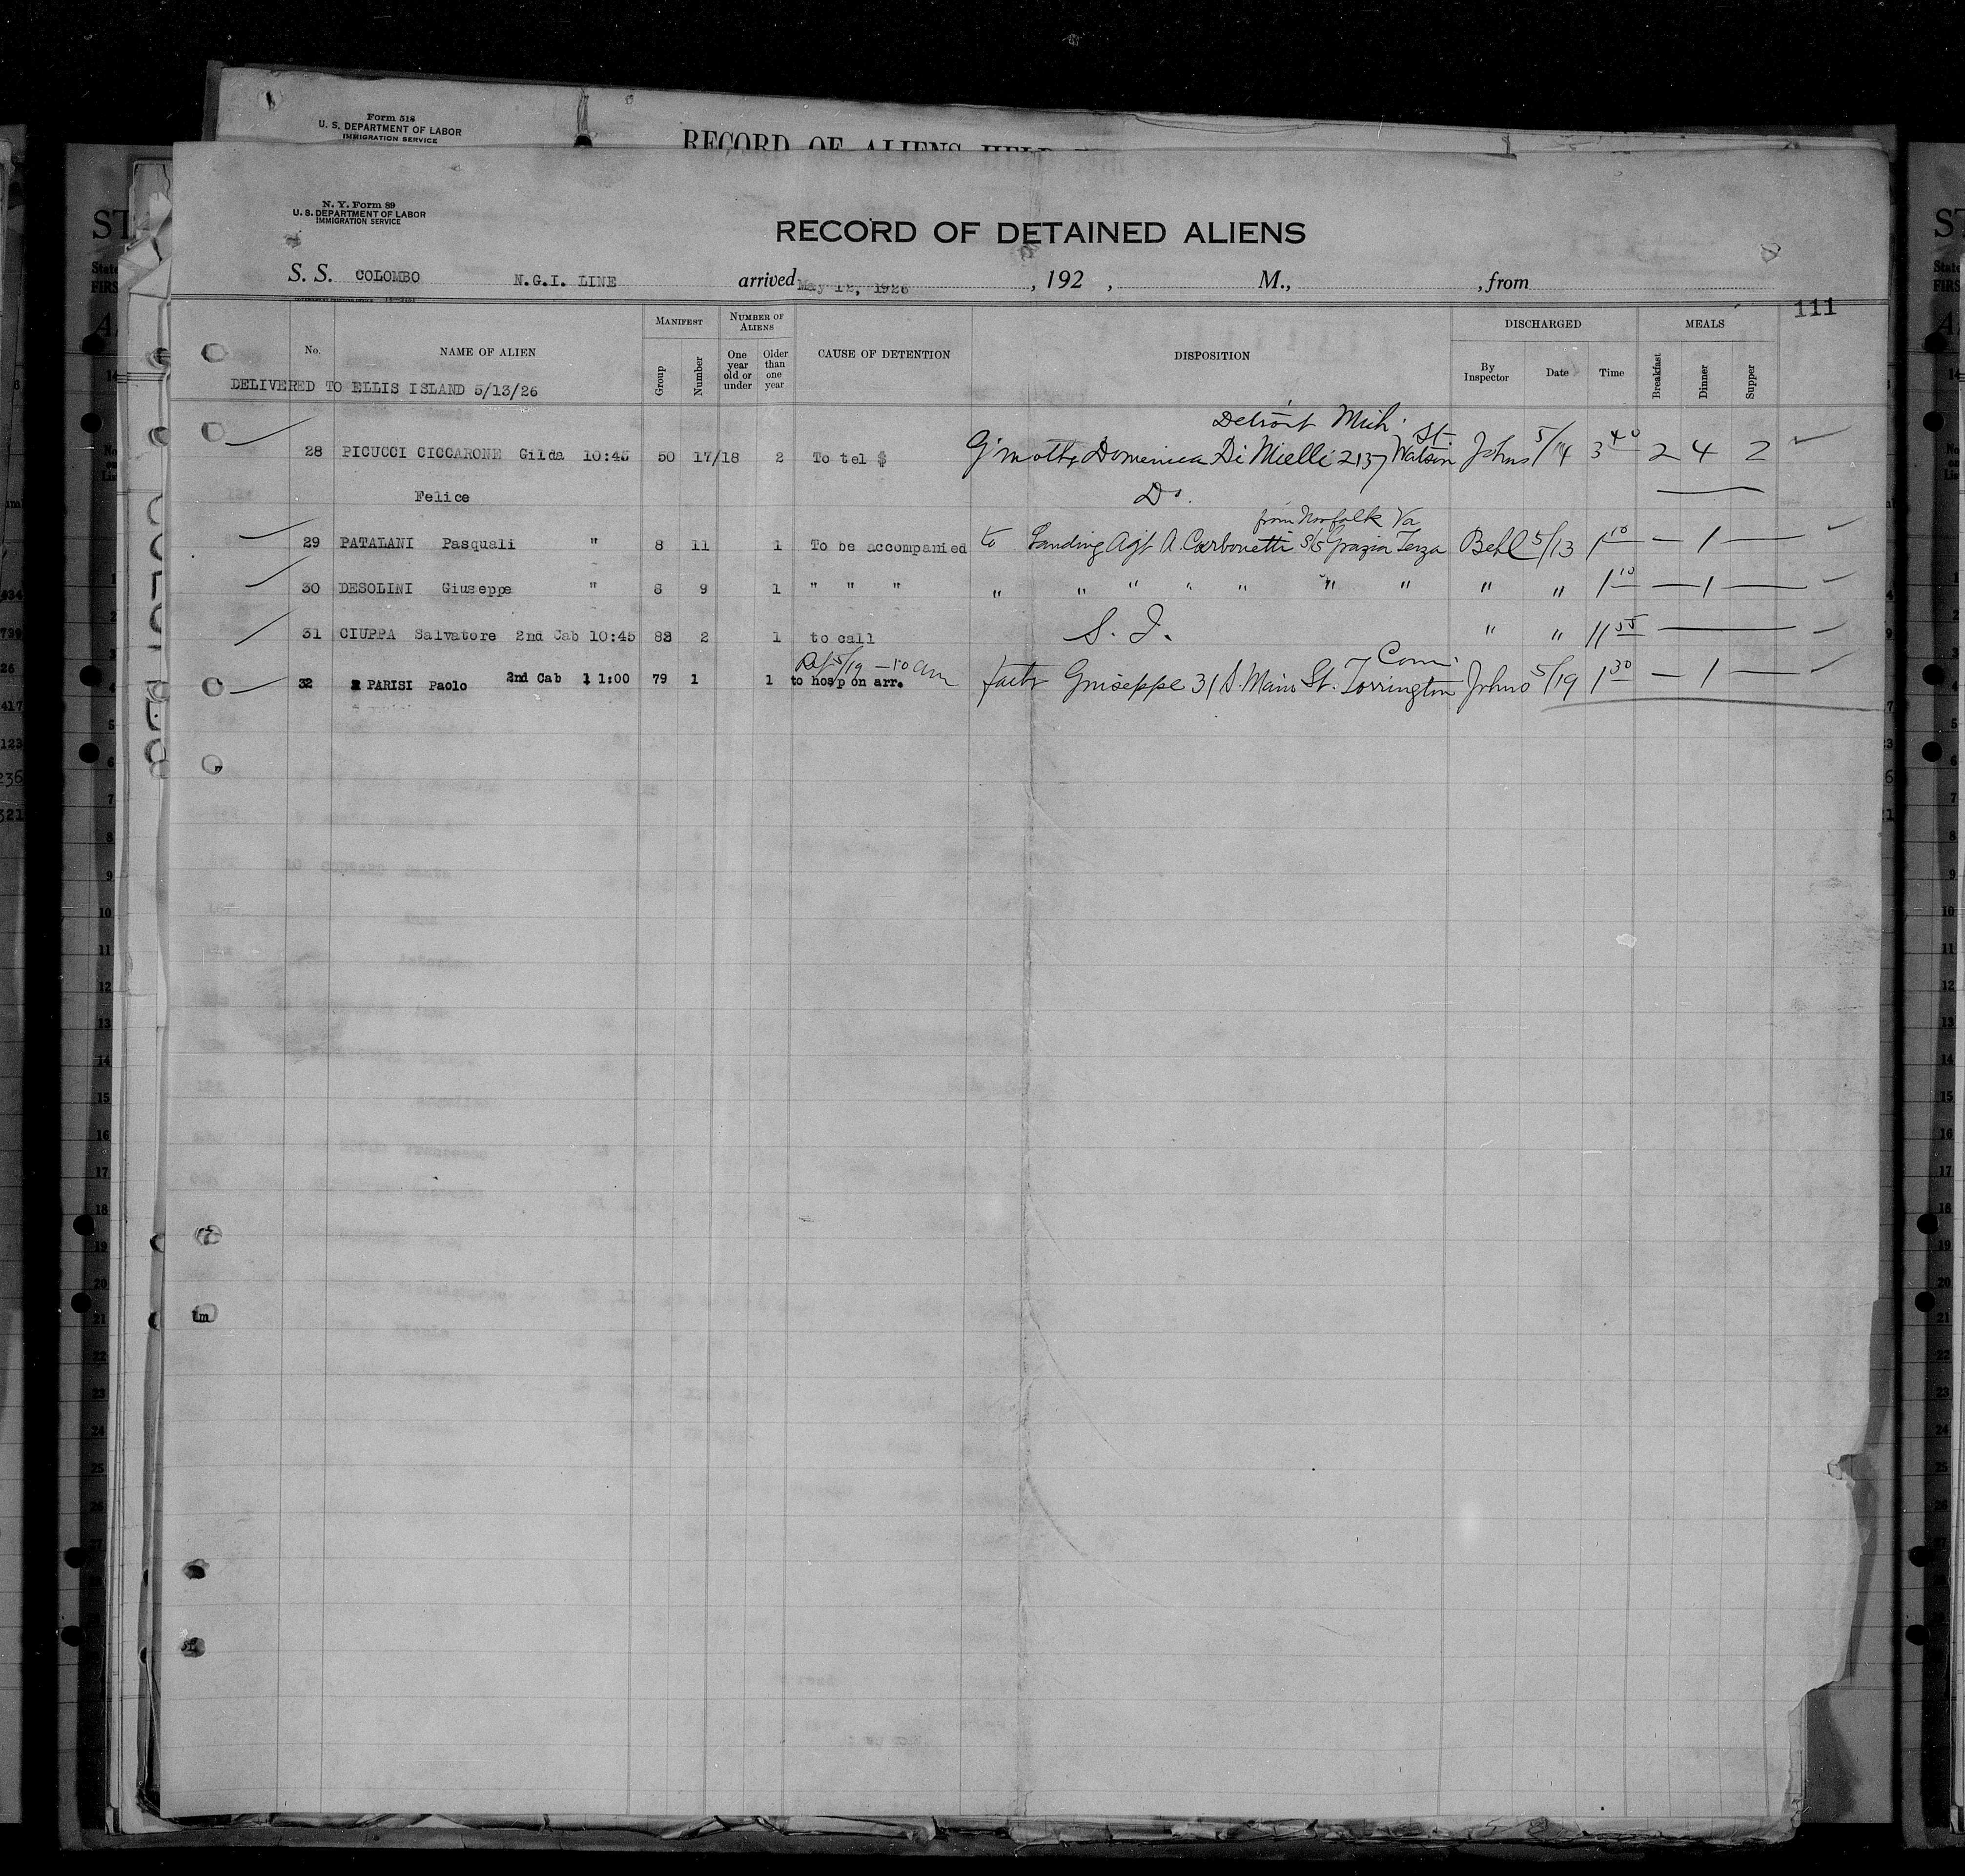 Form 518
U. S. DEPARTMENT OF LABOR
IMMIGRATION SERVICE
RECORD OF ALIENS HELD
N. Y. Form 89
U. S. DEPARTMENT OF LABOR
IMMIGRATION SERVICE
RECORD OF DETAINED ALIENS
S. S. COLOMBO N.G.I. LINE arrived May 12, 1926 , 192 , M., , from
111
No. NAME OF ALIEN MANIFEST Group Number NUMBER OF ALIENS One year old or under Older than one year CAUSE OF DETENTION DISPOSITION DISCHARGED By Inspector Date Time MEALS Breakfast Dinner Supper
DELIVERED TO ELLIS ISLAND 5/13/26
Detroit Mich.
28 PICUCCI CICCARONE Gilda 10:45 50 17/18 2 To tel $ G'moth Domenica Di Mielli 2137 Watson St. Johns 5/14 3 40 2 4 2
Felice Do.
from Norfolk Va
29 PATALANI Pasquali " 8 11 1 To be accompanied to Landing Agt A. Carbonetti S/S Grazia Terza Behl 5/13 1 10 — 1 —
30 DESOLINI Giuseppe " 8 9 1 " " " " " " " " " " " " 1 10 — 1 —
31 CIUPPA Salvatore 2nd Cab 10:45 83 2 1 to call S. I. " " 11 55
5/19 — 10 am Conn.
32 PARISI Paolo 2nd Cab 11:00 79 1 1 to hosp on arr. Giuseppe 31 S. Main St. Torrington Johns 5/19 1 30 — 1 —